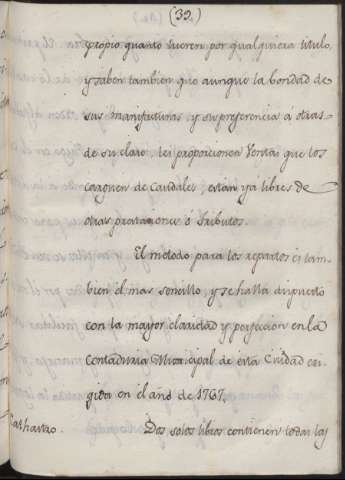 (39)
propio quanto fueren por qualquiera titulo,
y saben tambien que aunque la bondad de
sus manifaturas, y su preferencia á otras
de su clase les proporcionen Ventas que los
carguen de Caudales, están yá libres de
otras prestaciones ó tributos.
El metodo para los repartos es tam-
bien el mas sencillo, y se halla dispuesto
con la mayor claridad y perfeccion en la
Contaduria Municipal de esta Ciudad eri-
gida en el año de 1767.
Cathastro. Dos solos libros contienen todas las